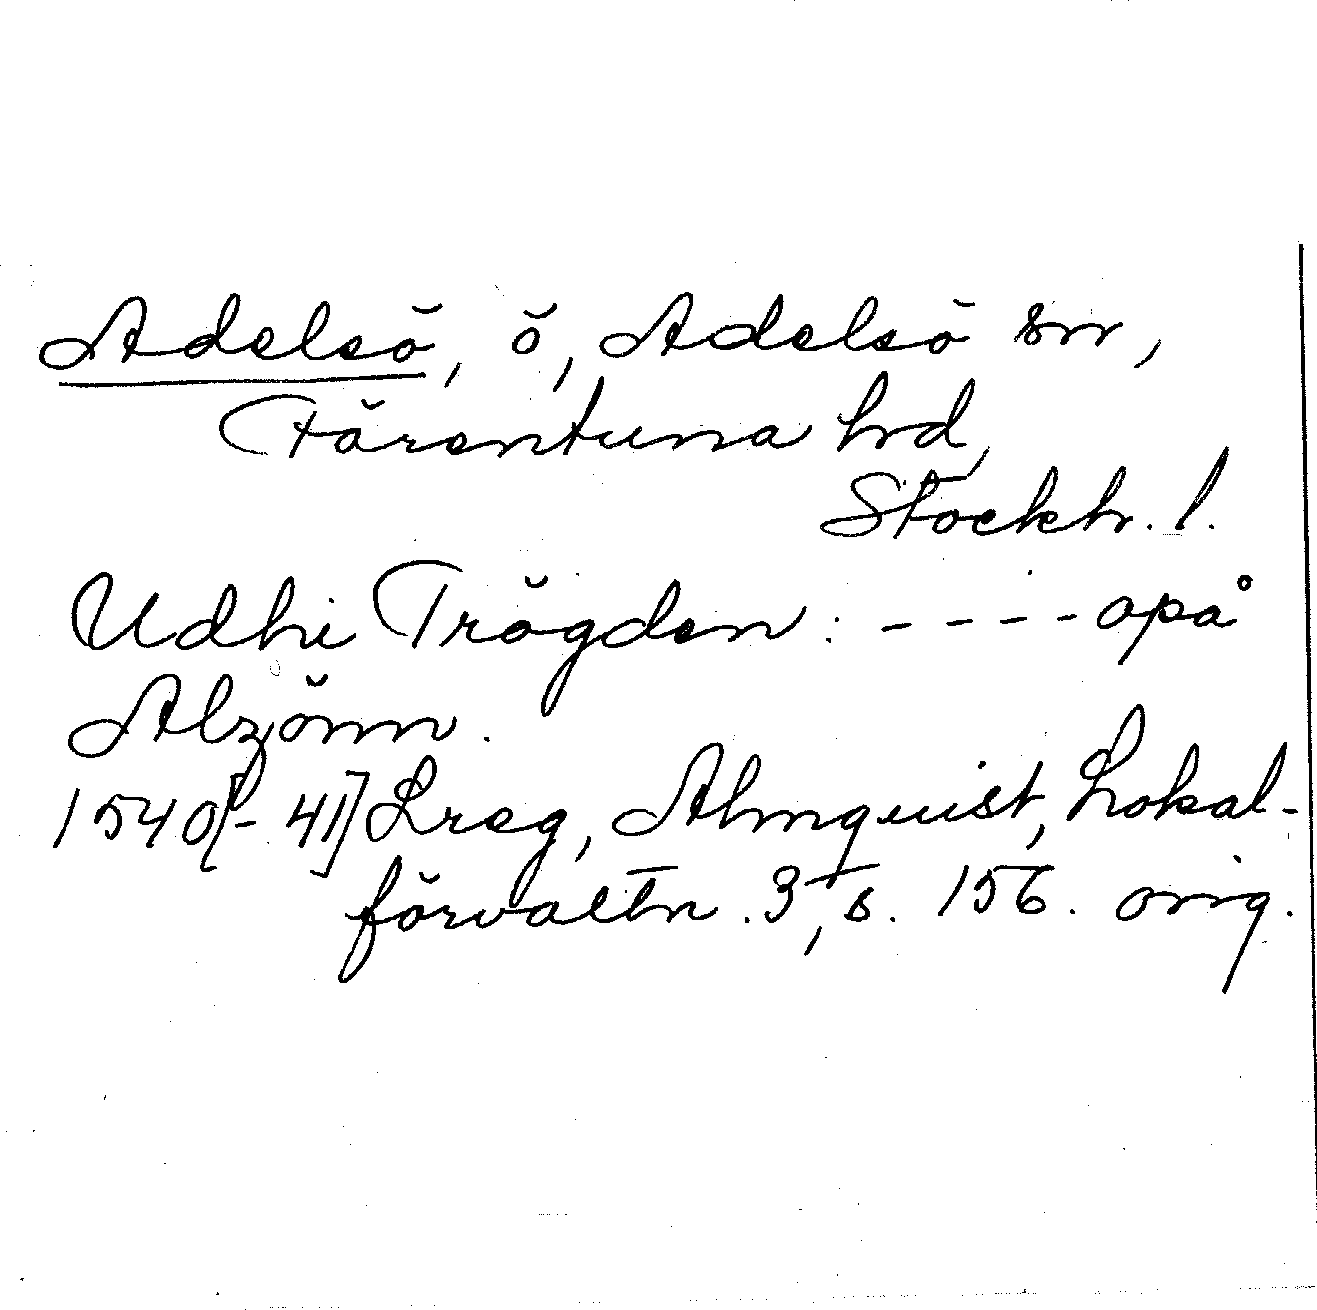 Adelsö, ö, Adelsö sn,
Färentuna hd,
Stockh. l.
Udhi Trögden : - - - - opå
Alzönn.
1540[- 41] Lreg, Almquist, Lokal-
förvaltn. 3, s. 156. orig.